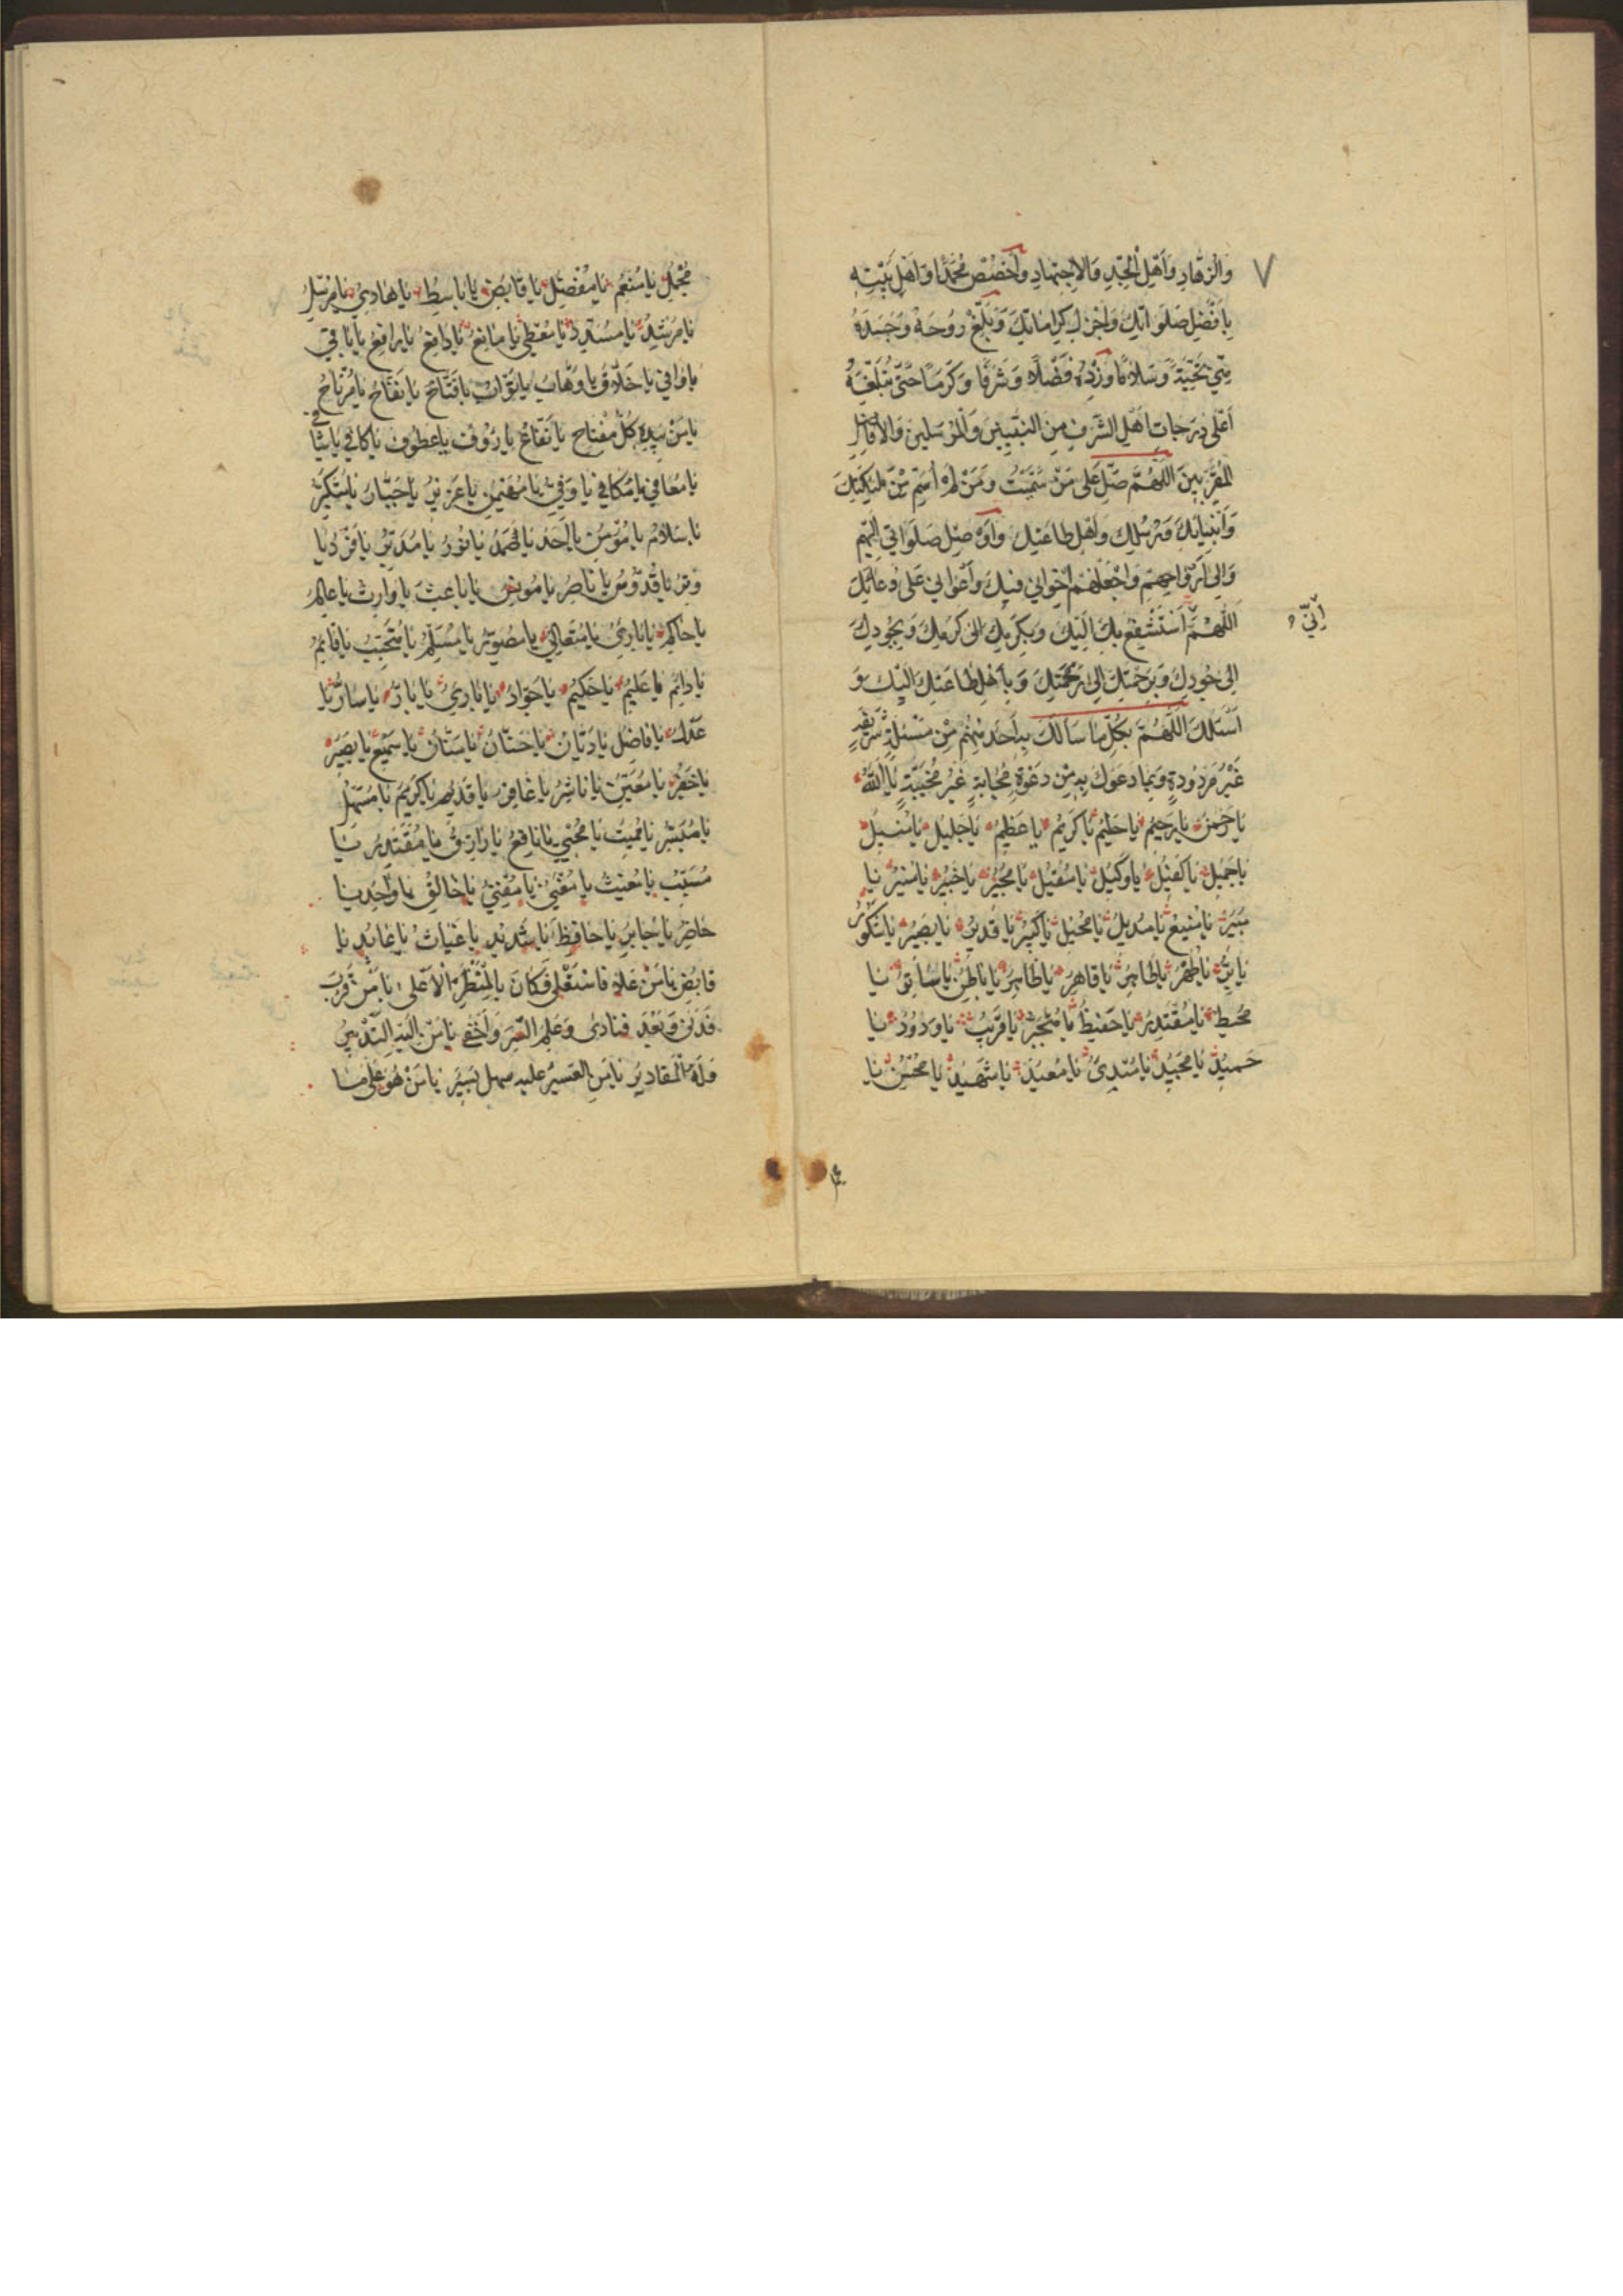 ٧
وَالزُّهَّادِ وَاَهْلِ الْجِدِّ وَالاِجْتِهادِ وَاَخْصُصْ مُحَمَّدًا وَاَهْلَ بَيْتِهِ
بِاَفْضَلِ صَلَوَاتِكَ وَاَجْزَلِ كَرَامَاتِكَ وَبَلِّغْ رُوحَهُ وَجَسَدَهُ
مِنِّي تَحِيَّةً وَسَلامًا وَزِدْهُ فَضْلًا وَشَرَفًا وَكَرَمًا حَتّى تُبَلِّغَهُ
اَعْلى دَرَجاتِ اَهْلِ الشَّرَفِ مِنَ النَّبِيّينَ وَالْمُرْسَلينَ وَالاَفاضِلِ
الْمُقَرَّبينَ اَللّهُمَّ صَلِّ عَلى مَنْ سَمَّيْتُ وَمَنْ لَمْ اُسَمِّ مِنْ مَلئِكَتِكَ
وَاَنْبِيائِكَ وَرُسُلِكَ وَاَهْلِ طاعَتِكَ وَاَوْصِلْ صَلَواتي اِلَيْهِمْ
وَاِلى اَرْواحِهِمْ وَاجْعَلْهُمْ اِخْواني فيكَ وَاَعْواني عَلى دُعائِكَ
اَللّهُمَّ اَسْتَشْفِعُ بِكَ اِلَيْكَ وَبِكَرَمِكَ اِلى كَرَمِكَ وَبِجُودِكَ
اِنّي
اِلى جُودِكَ وَبِرَحْمَتِكَ اِلى رَحْمَتِكَ وَبِاَهْلِ طاعَتِكَ اِلَيْكَ وَ
اَسْئَلُكَ اللّهُمَّ بِكُلِّ ما سَاَلَكَ بِهِ اَحَدٌ مِنْهُمْ مِنْ مَسْئَلَةٍ شَريفَةٍ
غَيْرِ مَرْدُودَةٍ وَبِما دَعَوْكَ بِهِ مِنْ دَعْوَةٍ مُجابَةٍ غَيْرِ مُخَيَّبَةٍ يا اَللّهُ
يا رَحْمنُ يا رَحيمُ يا حَليمُ يا كَريمُ يا عَظيمُ يا جَليلُ يا مُنيلُ
يا جَميلُ يا كَفيلُ يا وَكيلُ يا مُقيلُ يا مُجيرُ يا خَبيرُ يا مُنيرُ يا
مُبيرُ يا مَنيعُ يا مُديلُ يا مُحيلُ يا كَبيرُ يا قَديرُ يا بَصيرُ يا شَكُورُ
يا بَرُّ يا طُهْرُ يا طاهِرُ يا قاهِرُ يا ظاهِرُ يا باطِنُ يا ساتِرُ يا
مُحيطُ يا مُقْتَدِرُ يا حَفيظُ يا مُتَجَبِّرُ يا قَريبُ يا وَدُودُ يا
حَميدُ يا مَجيدُ يا مُبْدِئُ يا مُعيدُ يا شَهيدُ يا مُحْسِنُ يا
مُجْمِلُ يا مُنْعِمُ يا مُفْضِلُ يا قابِضُ يا باسِطُ يا هادي يا مُرْسِلُ
يا مُرْشِدُ يا مُسَدِّدُ يا مُعْطي يا مانِعُ يا دافِعُ يا رافِعُ يا باقي
يا واقي يا خَلّاقُ يا وَهّابُ يا تَوّابُ يا فَتّاحُ يا نَفّاحُ يا مُرْتاحُ
يا مَنْ بِيَدِهِ كُلُّ مِفْتاحٍ يا نَفّاعُ يا رَؤُوفُ يا عَطُوفُ يا كافي يا شافي
يا مُعافي يا مُكافي يا وَفِيُّ يا مُهَيْمِنُ يا عَزيزُ يا جَبّارُ يا مُتَكَبِّرُ
يا سَلامُ يا مُؤْمِنُ يا اَحَدُ يا صَمَدُ يا نُورُ يا مُدَبِّرُ يا فَرْدُ يا
وِتْرُ يا قُدُّوسُ يا ناصِرُ يا مُونِسُ يا باعِثُ يا وارِثُ يا عالِمُ
يا حاكِمُ يا بارِئُ يا مُتَعالي يا مُصَوِّرُ يا مُسَلِّمُ يا مُتَحَبِّبُ يا قائِمُ
يا دائِمُ يا عَليمُ يا حَكيمُ يا جَوادُ يا بارِئُ يا بارُّ يا سارُّ يا
عَدْلُ يا فاضِلُ يا دَيّانُ يا حَنّانُ يا مَنّانُ يا سَميعُ يا بَصيرُ
يا خَفيرُ يا مُعينُ يا ناشِرُ يا غافِرُ يا قَديمُ يا كَريمُ يا مُسَهِّلُ
يا مُيَسِّرُ يا مُميتُ يا مُحْيي يا نافِعُ يا رازِقُ يا مُقْتَدِرُ يا
مُسَبِّبُ يا مُغيثُ يا مُغْني يا مُقْني يا خالِقُ يا واحِدُ يا
حاضِرُ يا جابِرُ يا حافِظُ يا شَديدُ يا غِياثُ يا عائِدُ يا
قابِضُ يا مَنْ عَلا فَاسْتَعْلى فَكانَ بِالْمَنْظَرِ الاَعْلى يا مَنْ قَرُبَ
فَدَنى وَبَعُدَ فَنَأى وَعَلِمَ السِّرَّ وَاَخْفى يا مَنْ اِلَيْهِ التَّدْبيرُ
وَلَهُ الْمَقاديرُ يا مَنِ الْعَسيرُ عَلَيْهِ سَهْلٌ يَسيرٌ يا مَنْ هُوَ عَلى ما